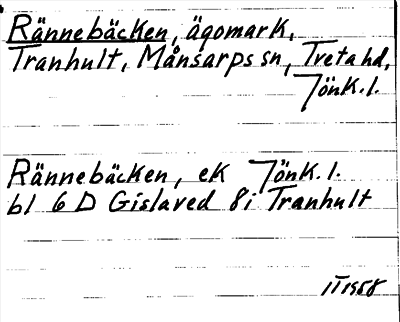 Rännebäcken, ägomark,
Tranhult, Månsarps sn, Tveta hd,
Jönk. l.
Rännebäcken, ek Jönk. l.
bl 6 D Gislaved 8i Tranhult
II 1958